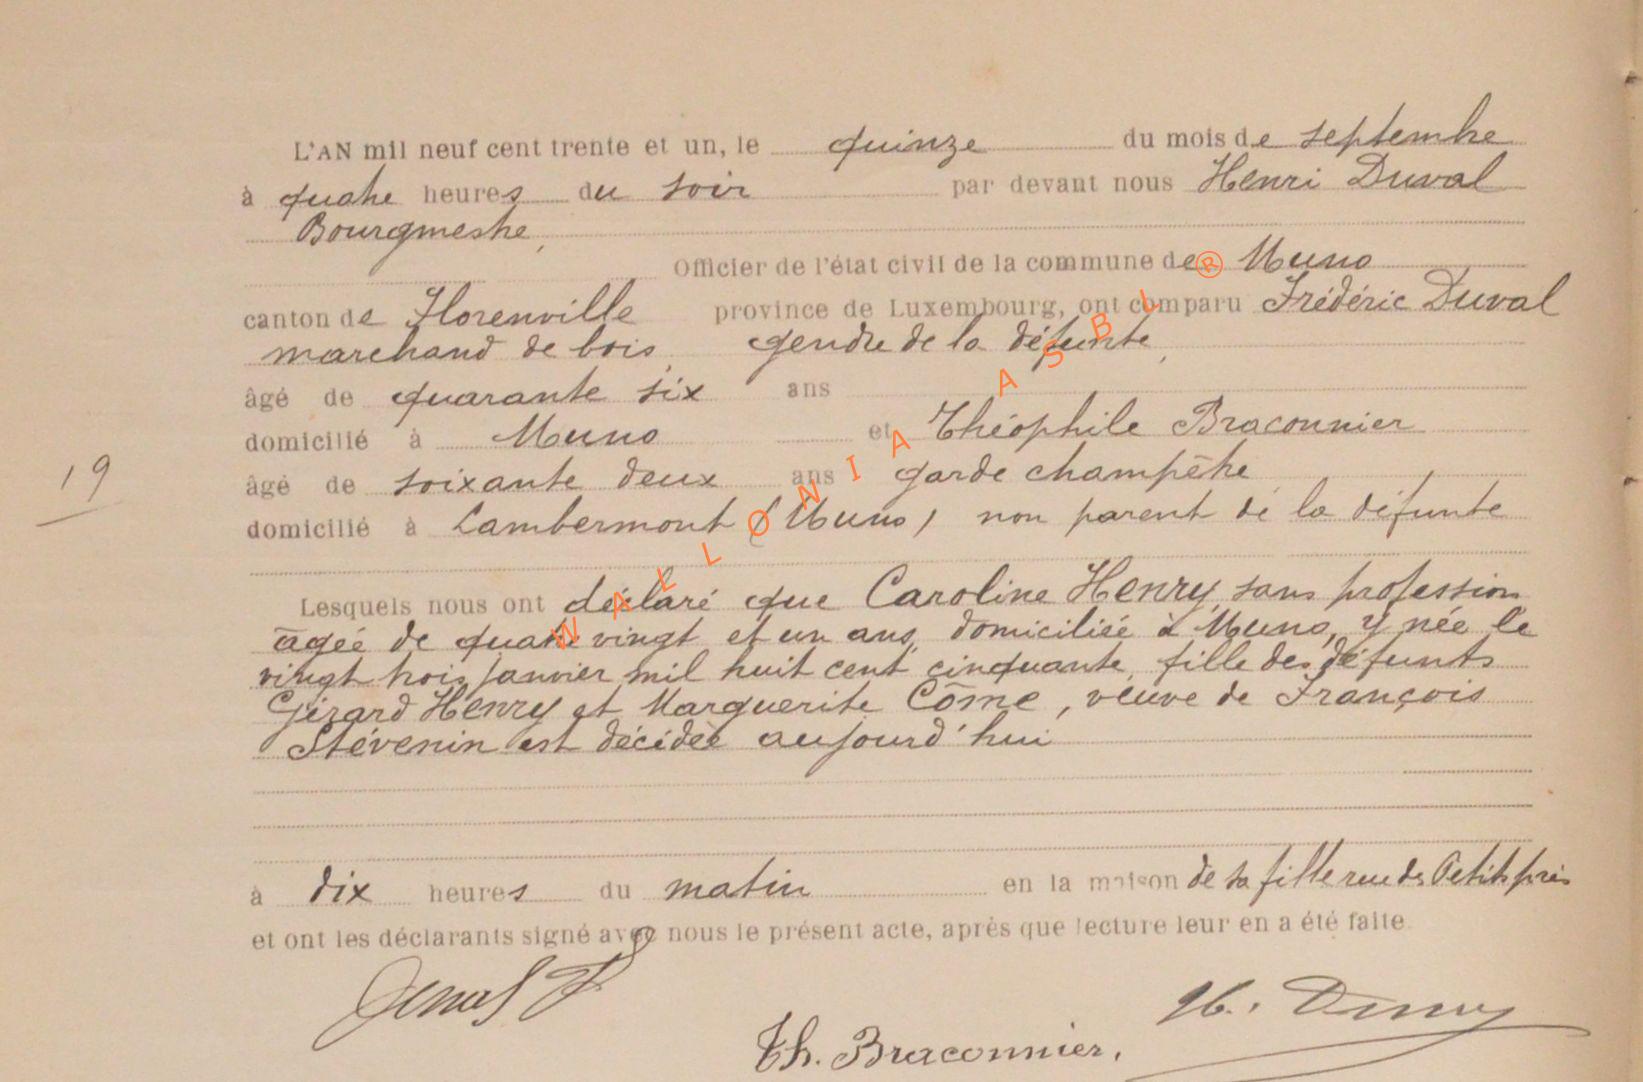 L'AN mil neuf cent trente et un, le quinze du mois de septembre
à quatre heures du soir par devant nous Henri Duval
Bourgmestre,
Officier de l'état civil de la commune de Muno
canton de Florenville province de Luxembourg, ont comparu Frédéric Duval
marchand de bois, gendre de la défunte,
âgé de quarante six ans
domicilié à Muno et Théophile Braconnier
19
âgé de soixante deux ans garde champêtre
domicilié à Lambermont (Muno) non parent de la défunte
Lesquels nous ont déclaré que Caroline Henry, sans profession
âgée de quatre vingt et un ans, domiciliée à Muno, y née le
vingt trois janvier mil huit cent cinquante, fille des défunts
Gérard Henry et Marguerite Côme, veuve de François
Stévenin est décédée aujourd'hui
à dix heures du matin en la maison de sa fille rue des Petits prés
et ont les déclarants signé avec nous le présent acte, après que lecture leur en a été faite
Th. Braconnier,
WALLONIA ASBL ®